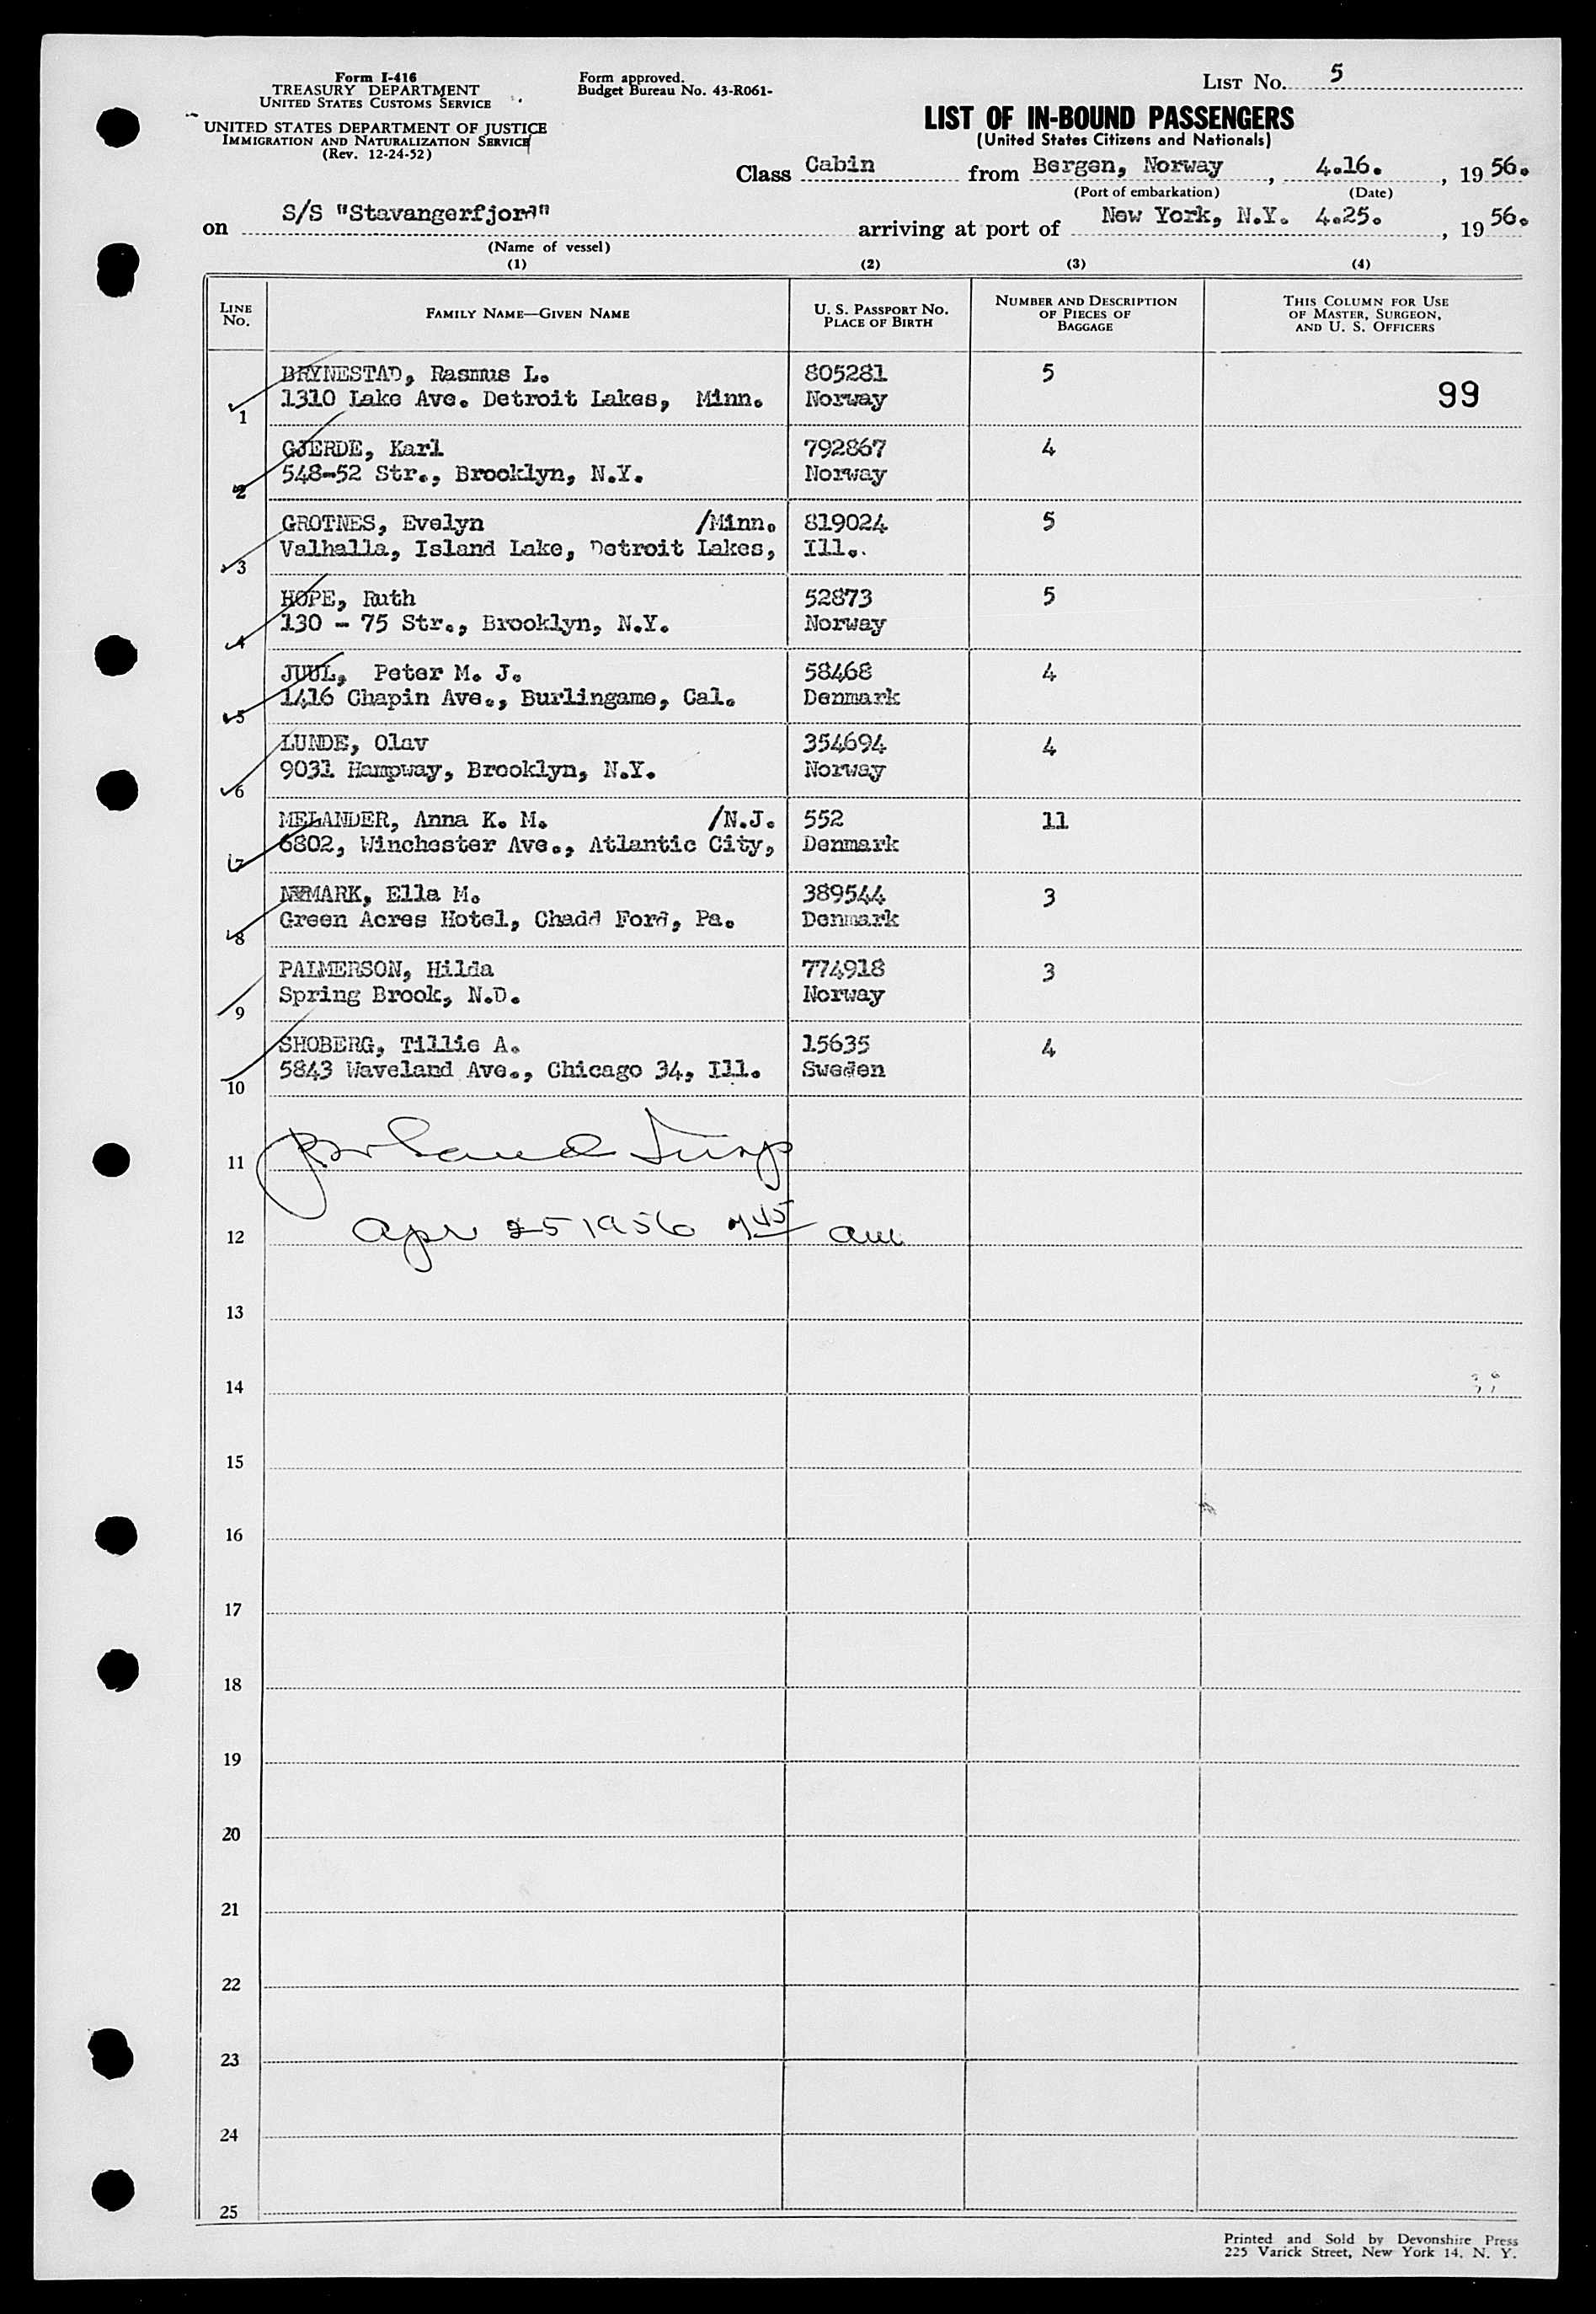 Form I-416
TREASURY DEPARTMENT
UNITED STATES CUSTOMS SERVICE
UNITED STATES DEPARTMENT OF JUSTICE
IMMIGRATION AND NATURALIZATION SERVICE
(Rev. 12-24-52)
Form approved.
Budget Bureau No. 43-R061-
LIST No. 5
LIST OF IN-BOUND PASSENGERS
(United States Citizens and Nationals)
Class Cabin from Bergen, Norway, 4.16., 19 56.
(Port of embarkation) (Date)
on S/S "Stavangerfjord" arriving at port of New York, N.Y. 4.25., 19 56.
(Name of vessel)
(1) (2) (3) (4)
LINE No. FAMILY NAME—GIVEN NAME U. S. PASSPORT No. PLACE OF BIRTH NUMBER AND DESCRIPTION OF PIECES OF BAGGAGE THIS COLUMN FOR USE OF MASTER, SURGEON, AND U. S. OFFICERS
BRYNESTAD, Rasmus L. 805281 5
1 1310 Lake Ave. Detroit Lakes, Minn. Norway 99
GJERDE, Karl 792867 4
2 548-52 Str., Brooklyn, N.Y. Norway
GROTNES, Evelyn /Minn. 819024 5
3 Valhalla, Island Lake, Detroit Lakes, Ill.
HOPE, Ruth 52873 5
4 130 - 75 Str., Brooklyn, N.Y. Norway
JUUL, Peter M. J. 58468 4
5 1416 Chapin Ave., Burlingame, Cal. Denmark
LUNDE, Olav 354694 4
6 9031 Hampway, Brooklyn, N.Y. Norway
MELANDER, Anna K. M. /N.J. 552 11
7 6802, Winchester Ave., Atlantic City, Denmark
NYMARK, Ella M. 389544 3
8 Green Acres Hotel, Chadd Ford, Pa. Denmark
PALMERSON, Hilda 774918 3
9 Spring Brook, N.D. Norway
SHOBERG, Tillie A. 15635 4
10 5843 Waveland Ave., Chicago 34, Ill. Sweden
11
12 Apr 25 1956 745 am
13
14
15
16
17
18
19
20
21
22
23
24
25
Printed and Sold by Devonshire Press
225 Varick Street, New York 14, N. Y.